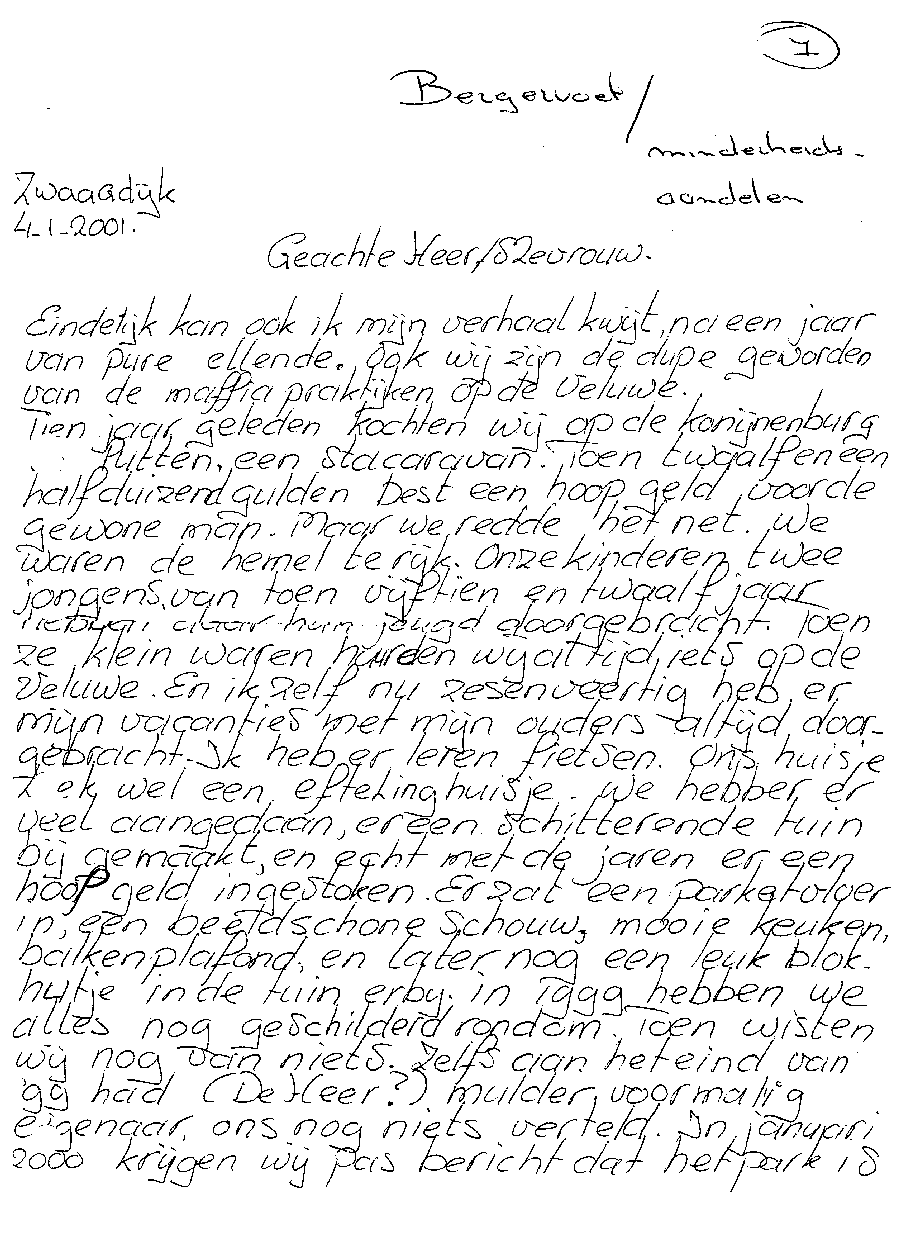 1
Bergervoet/
minderheids-
aandelen
Zwaagdijk
4-1-2001.
Geachte Heer/Mevrouw.
Eindelijk kan ook ik mijn verhaal kwijt, na een jaar
van pure ellende. Ook wij zijn de dupe geworden
van de maffia praktijken op de Veluwe.
Tien jaar geleden kochten wij op de konijnenburg
Putten, een stacaravan. Toen twaalfeneen
half duizend gulden best een hoop geld voor de
gewone man. Maar we redde het net. We
waren de hemel te rijk. Onze kinderen, twee
jongens, van toen vijftien en twaalf jaar
hebben daar hun jeugd doorgebracht. Toen
ze klein waren huurden wij altijd iets op de
Veluwe. En ik zelf nu zesenveertig heb er
mijn vacanties met mijn ouders altijd door-
gebracht. Ik heb er leren fietsen. Ons huisje
l ek wel een efteling huisje. We hebben er
veel aangedaan, er een schitterende tuin
bij gemaakt, en echt met de jaren er een
hoop geld ingestoken. Er zat een parketvloer
in, een beeldschone schouw, mooie keuken,
balkenplafond, en later nog een leuk blok-
hutje in de tuin erby. in 1999 hebben we
alles nog geschilderd rondom. Toen wisten
wij nog van niets. Zelfs aan het eind van
99 had (De Heer?) mulder, voormalig
eigenaar, ons nog niets verteld. In januari
2000 krijgen wij pas bericht dat het park is